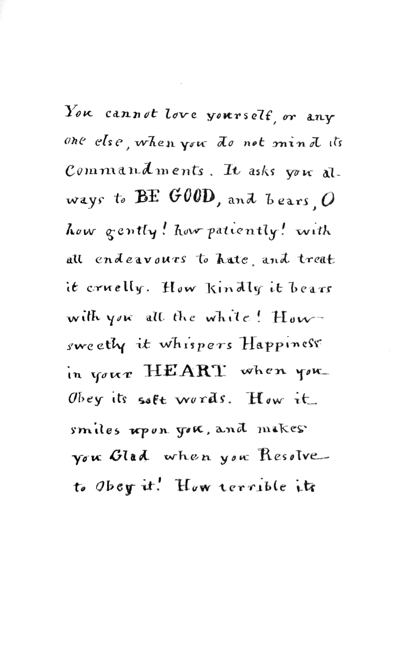 You cannot love yourself, or any
one else, when you do not mind its
Commandments. It asks you al-
ways to BE GOOD, and bears, O
how gently! how patiently! with
all endeavours to hate, and treat
it cruelly. How kindly it bears
with you all the while! How
sweetly it whispers Happiness
in your HEART when you
Obey its soft words. How it
smiles upon you, and makes
you Glad when you Resolve
to Obey it! How terrible its